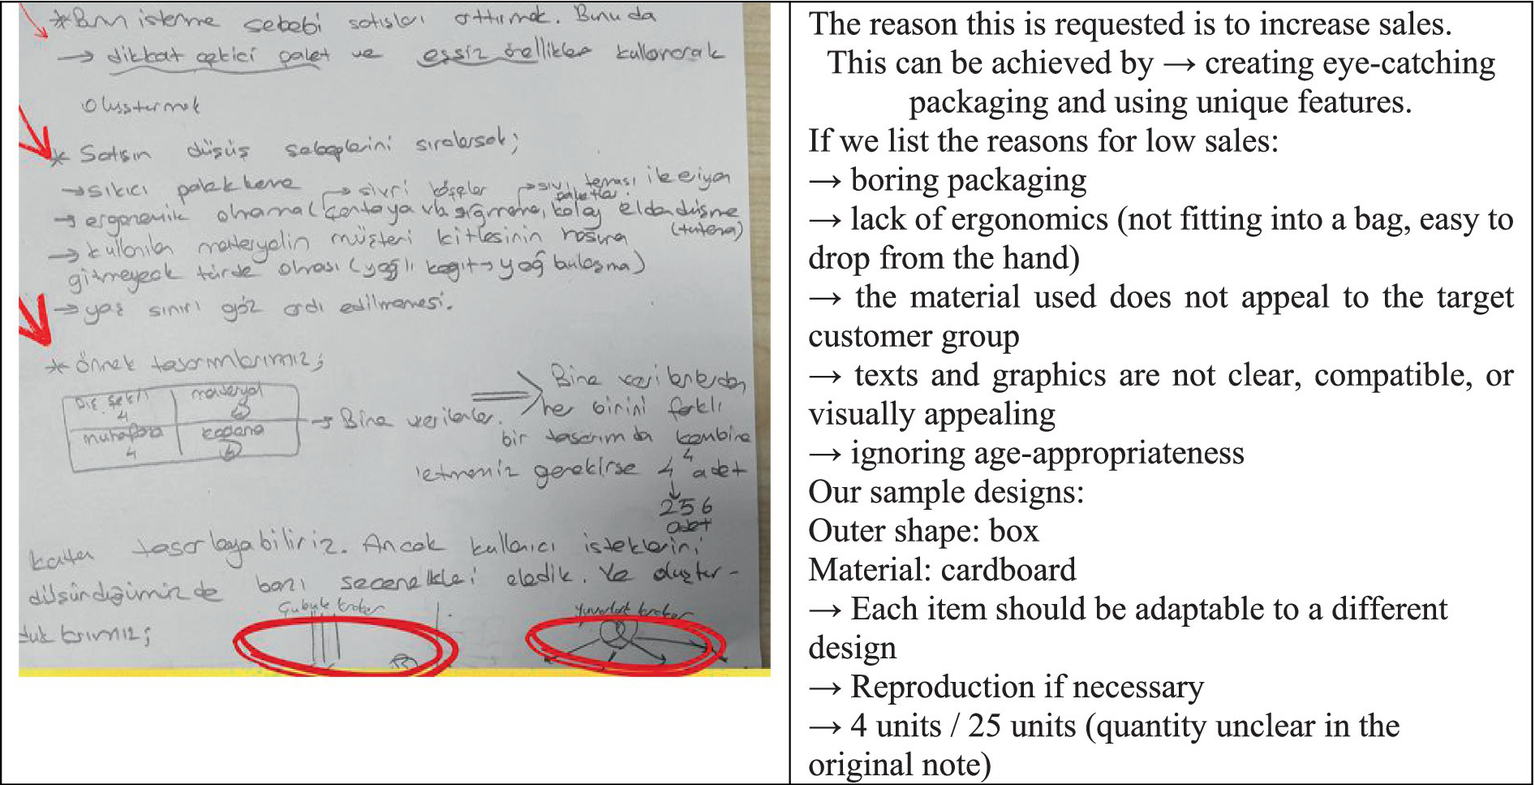 *Bunu isteme sebebi satışları arttırmak. Bunu da
→ dikkat çekici paket ve eşsiz özellikler kullanarak
oluşturmak
* Satışın düşüş sebeplerini sıralarsak;
→ sıkıcı paketleme
→ sivri köşeler
→ ergonomik olmama (çantaya vb sığmama, kolay elden düşme
(tutma)
→ kullanılan materyalin müşteri kitlesinin hoşuna
gitmeyecek türde olması (yağlı kağıt → yağ bulaşma)
→ yaş sınırı göz ardı edilmemesi.
* örnek tasarımlarımız;
Dış şekli 4
materyal
muhafaza 4
→ Bize verilenler.
⇒ Bize verilenlerden
her birini farklı
bir tasarımda kombine
etmemiz gerekirse 4⁴ adet
↓
256
adet
kadar tasarlayabiliriz. Ancak kullanıcı isteklerini
düşündüğümüzde bazı seçenekleri eledik. Ve oluştur-
duklarımız;
Çubuk kraker
Yuvarlak kraker
The reason this is requested is to increase sales.
This can be achieved by → creating eye-catching
packaging and using unique features.
If we list the reasons for low sales:
→ boring packaging
→ lack of ergonomics (not fitting into a bag, easy to
drop from the hand)
→ the material used does not appeal to the target
customer group
→ texts and graphics are not clear, compatible, or
visually appealing
→ ignoring age-appropriateness
Our sample designs:
Outer shape: box
Material: cardboard
→ Each item should be adaptable to a different
design
→ Reproduction if necessary
→ 4 units / 25 units (quantity unclear in the
original note)